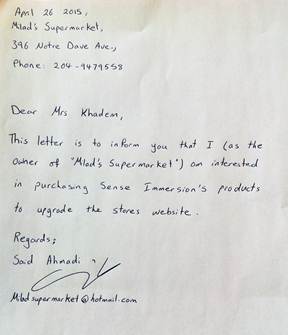 April 26 2015,
Milad's Supermarket,
396 Notre Dave Ave.,
Phone: 204-9479558
Dear Mrs Khadem,
This letter is to inform you that I (as the
owner of "Milad's Supermarket") am interested
in purchasing Sense Immersion's products
to upgrade the stores website.
Regards;
Said Ahmadi
Miladsupermarket@hotmail.com